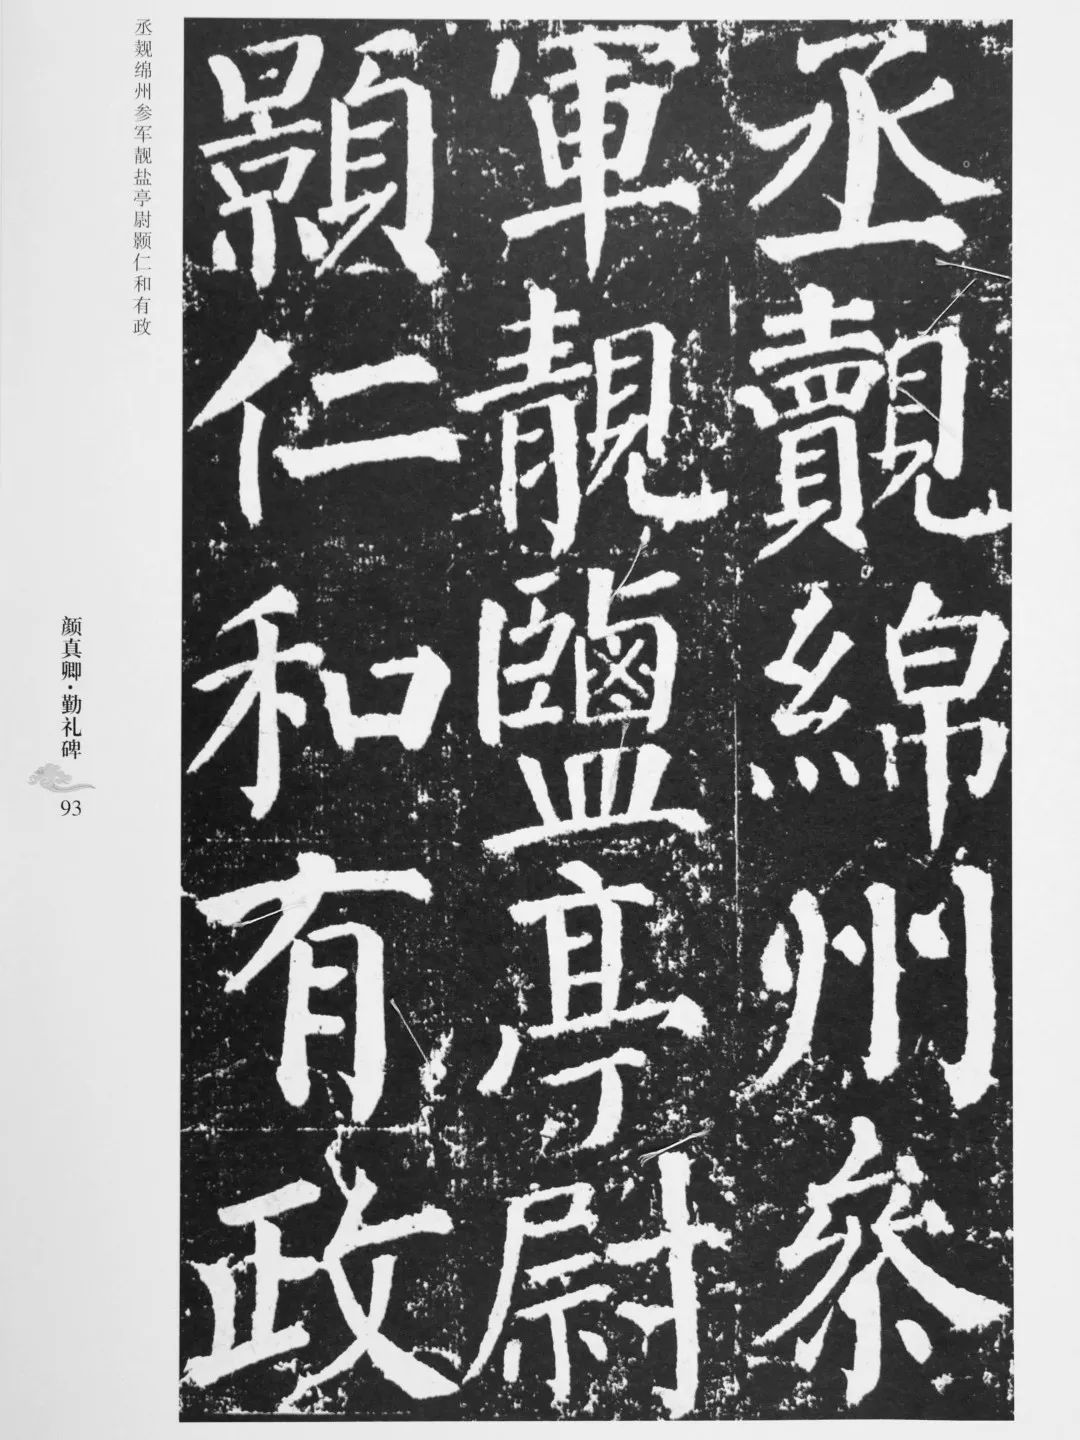 丞覿綿州参
軍靚鹽亭尉
顥仁和有政
丞觌绵州参军靓盐亭尉颢仁和有政
颜真卿·勤礼碑
93